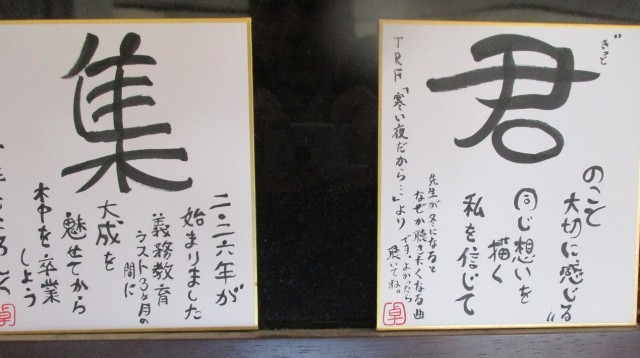 "きっと
君
のこと
大切に感じる"
同じ想いを
描く
私を信じて
先生が冬になると
なぜか聴きたくなる曲
です。よかったら
聴いてね。
TRF「寒い夜だから…」より
卓
集
二〇二六年が
始まりました
義務教育
ラスト3ヶ月の
間に
大成を
魅せてから
本中を卒業
しよう
卓